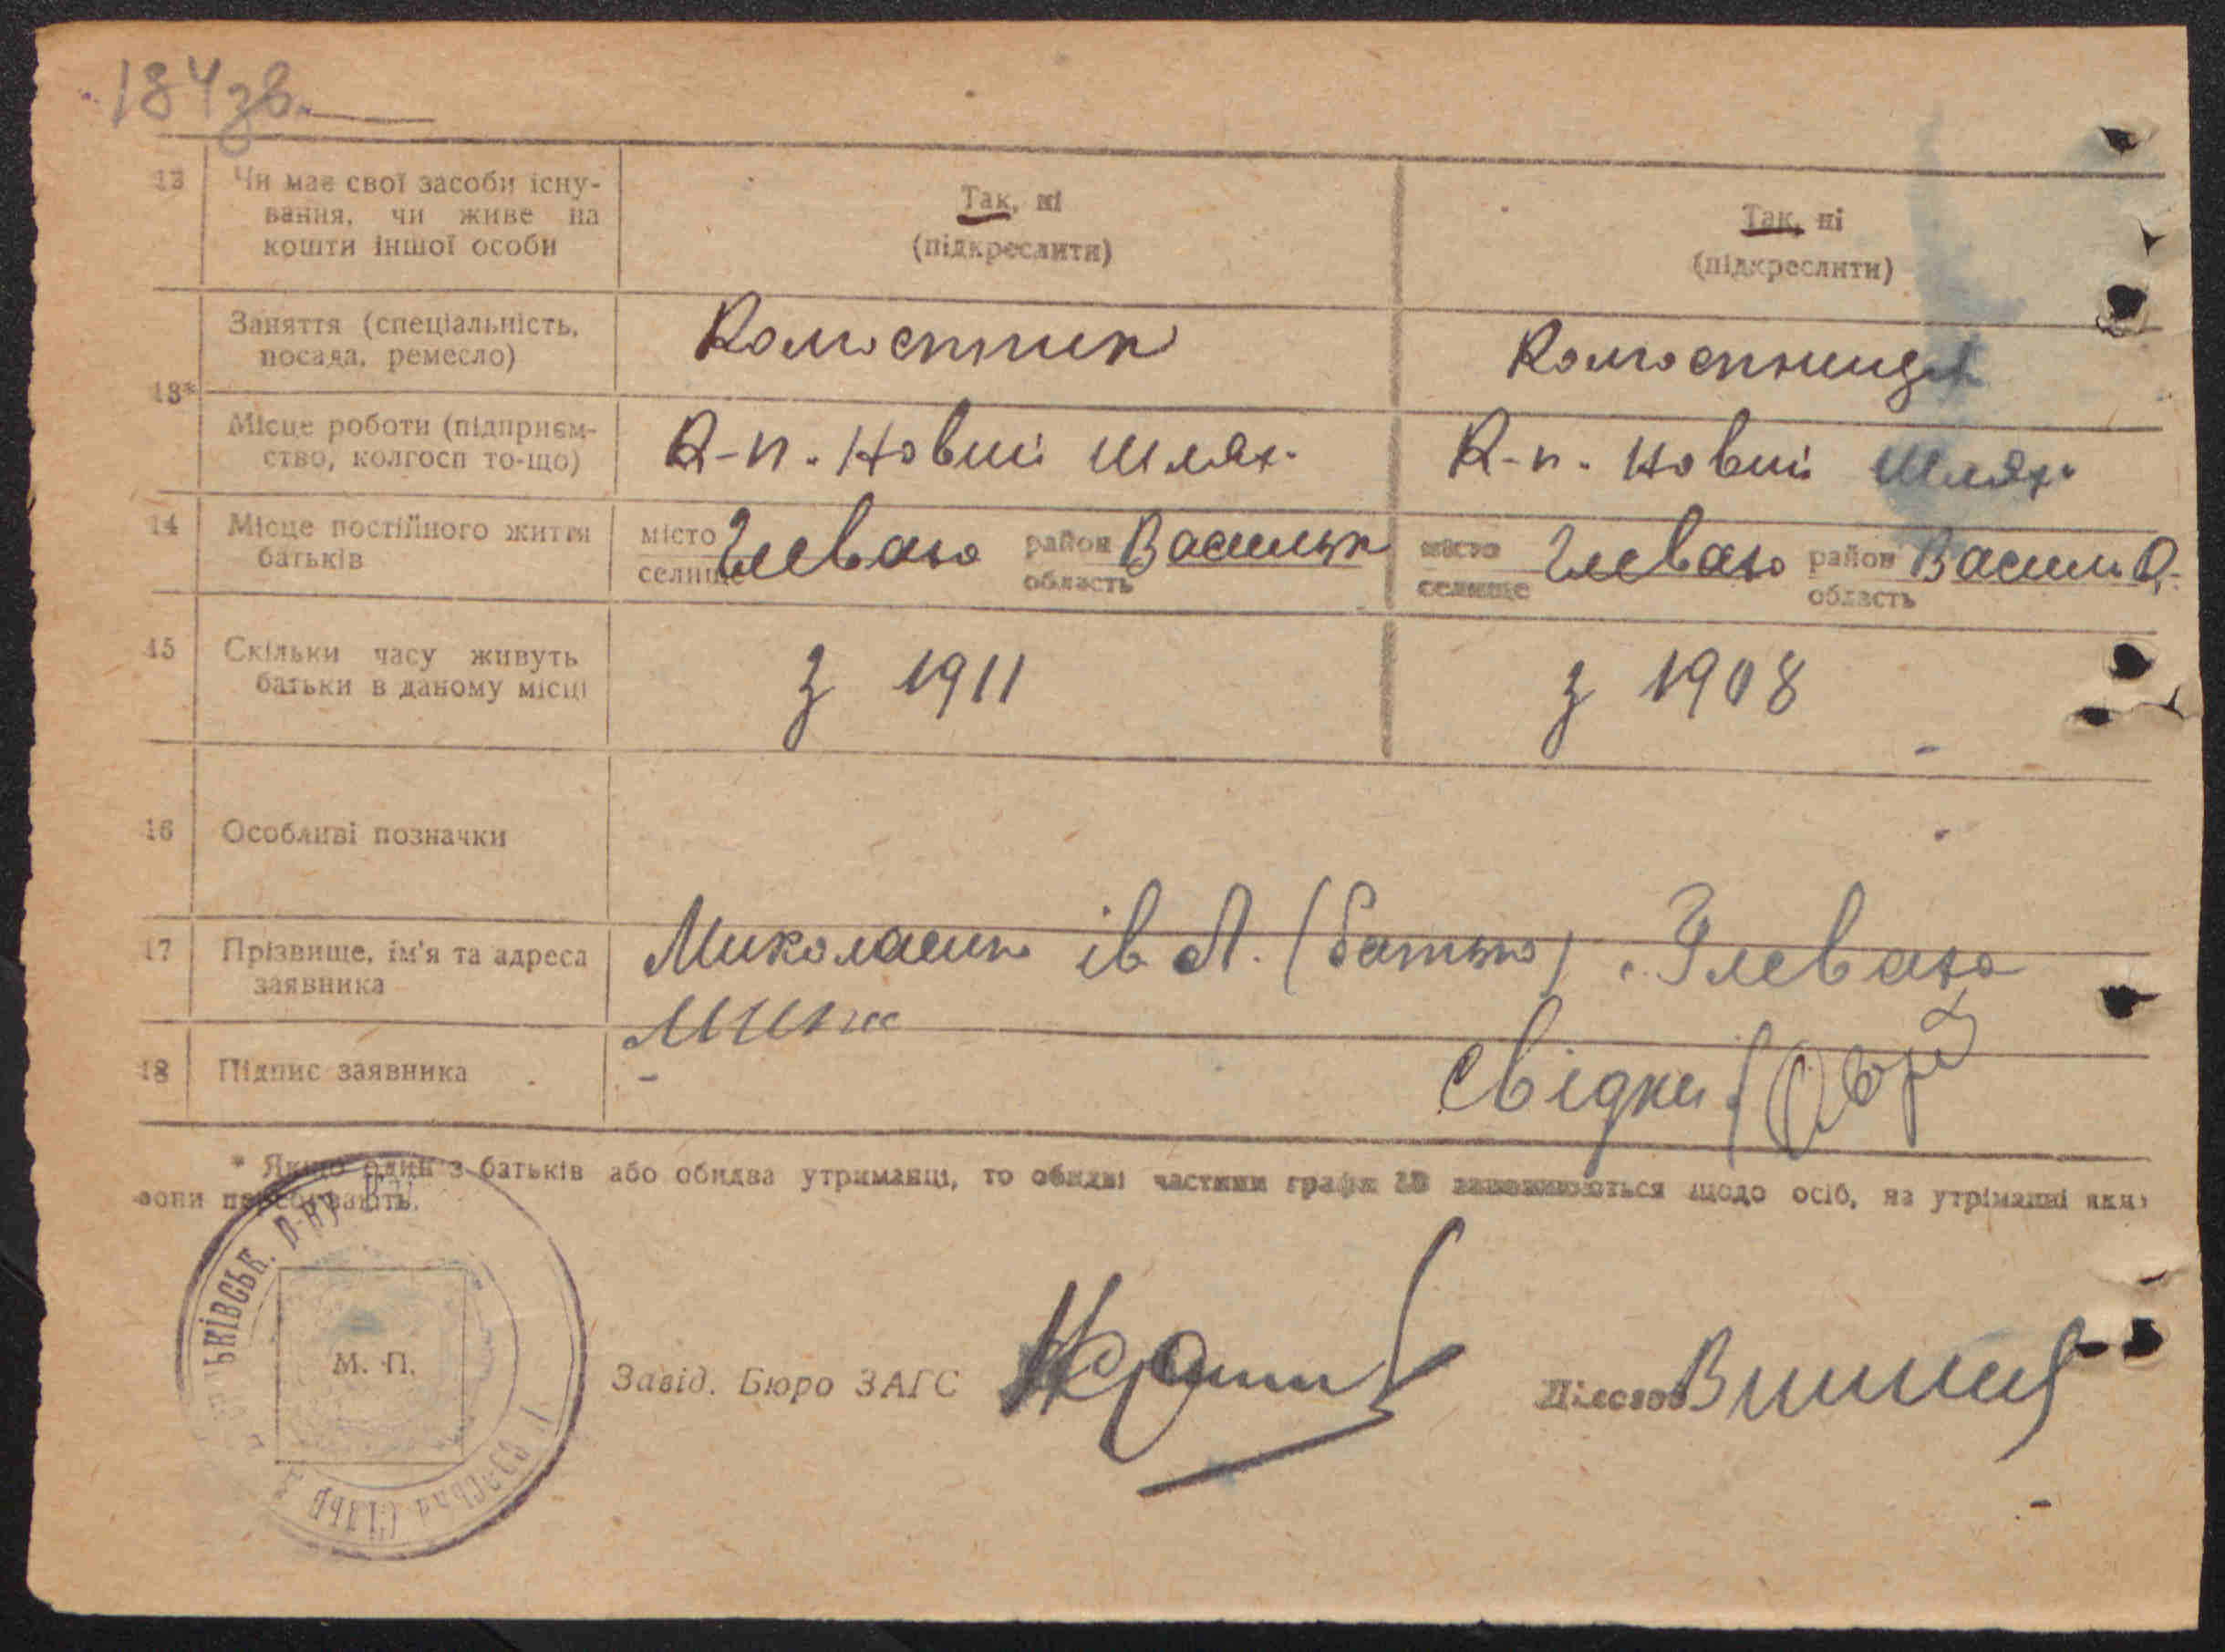 184 зв.
12 Чи має свої засоби існування, чи живе на кошти іншої особи
Так, ні
(підкреслити)
Так, ні
(підкреслити)
13*
Заняття (спеціальність, посада, ремесло)
Колгоспник
Колгоспниця
Місце роботи (підприємство, колгосп то-що)
К-п. Новий Шлях.
К-п. Новий Шлях.
14 Місце постійного життя батьків
місто селище Глеваха район область Васильк
місто селище Глеваха район область Васильк.
15 Скільки часу живуть батьки в даному місці
з 1911
з 1908
16 Особливі позначки
17 Прізвище, ім'я та адреса заявника
ів. (батько) Глеваха
18 Підпис заявника
Свідки
* Якщо один з батьків або обидва утриманці, то обидві частини графи заповнюються щодо осіб, на утріманні яких
вони перебувають.
М. П.
Завід. Бюро ЗАГС
Діловод